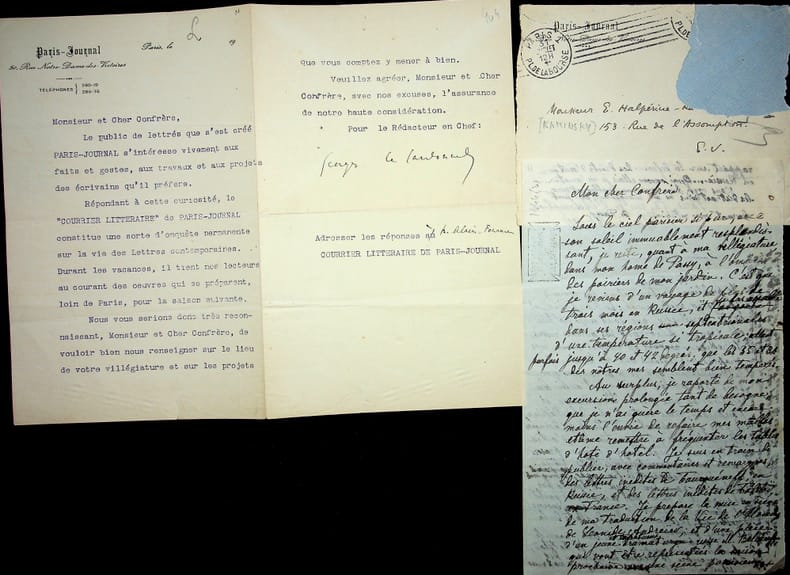 L
Paris-Journal
Paris, le 19
30, Rue Notre-Dame-des-Victoires
TÉLÉPHONES
Monsieur et Cher Confrère,
Le public de lettrés que s'est créé
PARIS-JOURNAL s'intéresse vivement aux
faits et gestes, aux travaux et aux projets
des écrivains qu'il préfère.
Répondant à cette curiosité, le
"COURRIER LITTERAIRE" de PARIS-JOURNAL
constitue une sorte d'enquête permanente
sur la vie des Lettres contemporaines.
Durant les vacances, il tient nos lecteurs
au courant des oeuvres qui se préparent,
loin de Paris, pour la saison suivante.
Nous vous serions donc très recon-
naissant, Monsieur et Cher Confrère, de
vouloir bien nous renseigner sur le lieu
de votre villégiature et sur les projets
104
que vous comptez y mener à bien.
Veuillez agréer, Monsieur et Cher
Confrère, avec nos excuses, l'assurance
de notre haute considération.
Pour le Rédacteur en Chef:
Adresser les réponses au
COURRIER LITTERAIRE DE PARIS-JOURNAL
Paris-Journal
PARIS
PL. DE LA BOURSE
Monsieur E. Halpérine-
[KAMINSKY] 153 Rue de l'Assomption.
E. V.
Mon cher Confrère
Sous le ciel parisien
son soleil immuablement resplendis-
sant, je reste, quant à ma villégiature
dans mon home de Passy, à l'ombre
des poiriers de mon jardin. C'est que
je reviens d'un voyage de plus de
trois mois en Russie, et
dans ses régions septentrionales
d'une température de tropicale
parfois jusqu'à 40 et 42 degrés, que les 35
des notres mes semblent bien tempérés
Au surplus, je raporte de mon
excursion prolongée tant de besogne,
que je n'ai guère le temps et encore
moins l'envie de refaire mes malles
et de me remettre à fréquenter les tables
d'hote d'hôtel. Je suis en train de
publier, avec commentaires et remarques
des lettres inédites de Tourguéneff en
Russie, et des lettres inédites de
France. Je prepare la mise en scène
de ma traduction de la Vie de l'Homme
de Léonide Andreïev, et d'une pièce
d'un jeune dramaturge russe
qui vont être représentées la saison
prochaine sur une scène parisienne